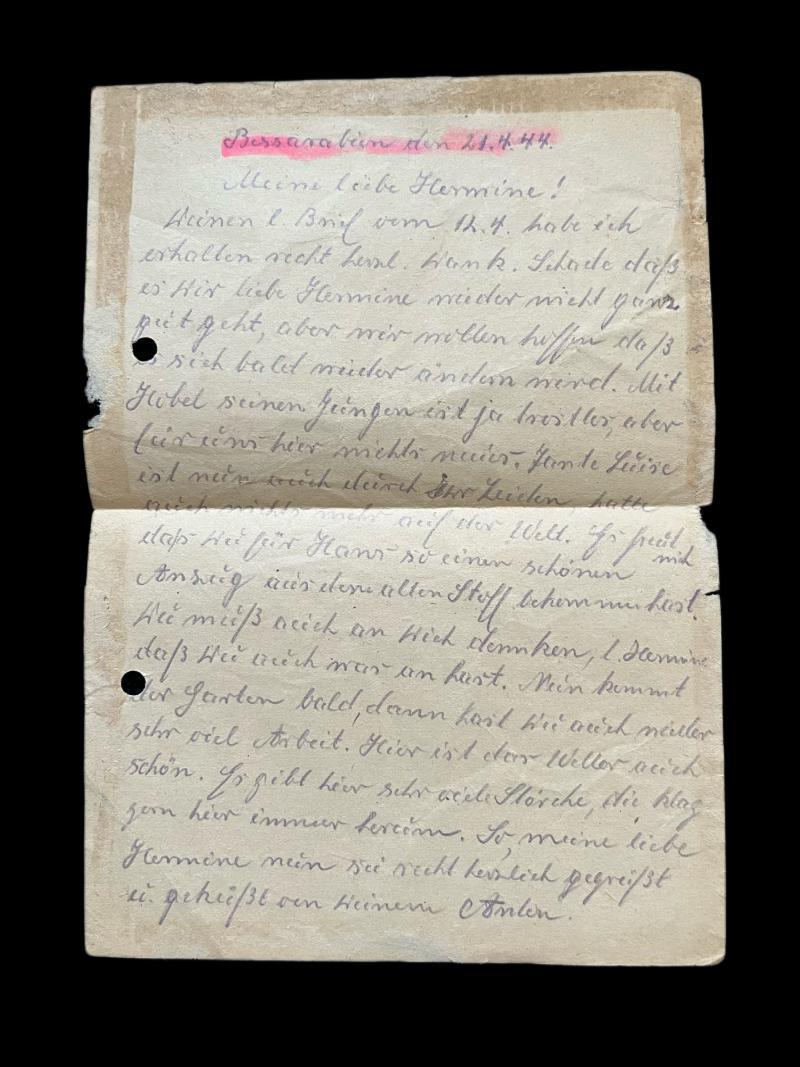 Bessarabien den 21.4.44.
Meine liebe Hermine!
Deinen l. Brief vom 12.4. habe ich
erhalten recht herzl. Dank. Schade daß
es Dir liebe Hermine wieder nicht ganz
gut geht, aber wir wollen hoffen daß
es sich bald wieder ändern wird. Mit
Hobel seinen Jungen ist ja trostlos, aber
für uns hier nichts neues. Tante Luise
ist nun auch durch Ihr Leiden, hatte
auch nichts mehr auf der Welt. Es freut mich
daß Du für Hans so einen schönen
Anzug aus dem alten Stoff bekommen hast.
Du mußt auch an Dich denken, l. Hermine
daß Du auch was an hast. Nun kommt
der Garten bald, dann hast Du auch wieder
sehr viel Arbeit. Hier ist das Wetter auch
schön. Es gibt hier sehr viele Störche, die
hier immer herum. So, meine liebe
Hermine nun sei recht herzlich gegrüßt
u. geküßt von Deinem Anton.